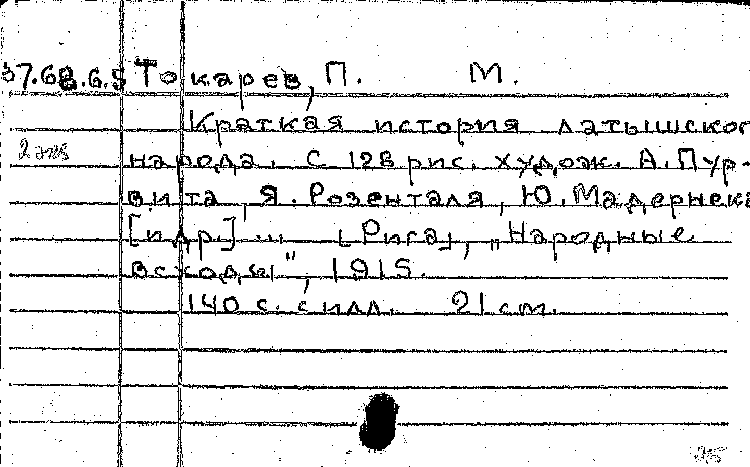 37.68.6.5 Токарев, П. М.
Краткая история латышског
2 экз народа. С 128 рис. худож. А. Пур-
вита, Я. Розенталя, Ю. Мадернека
[и др.] ... [Рига], „Народные
всходы", 1915.
140 с. с илл. 21 см.